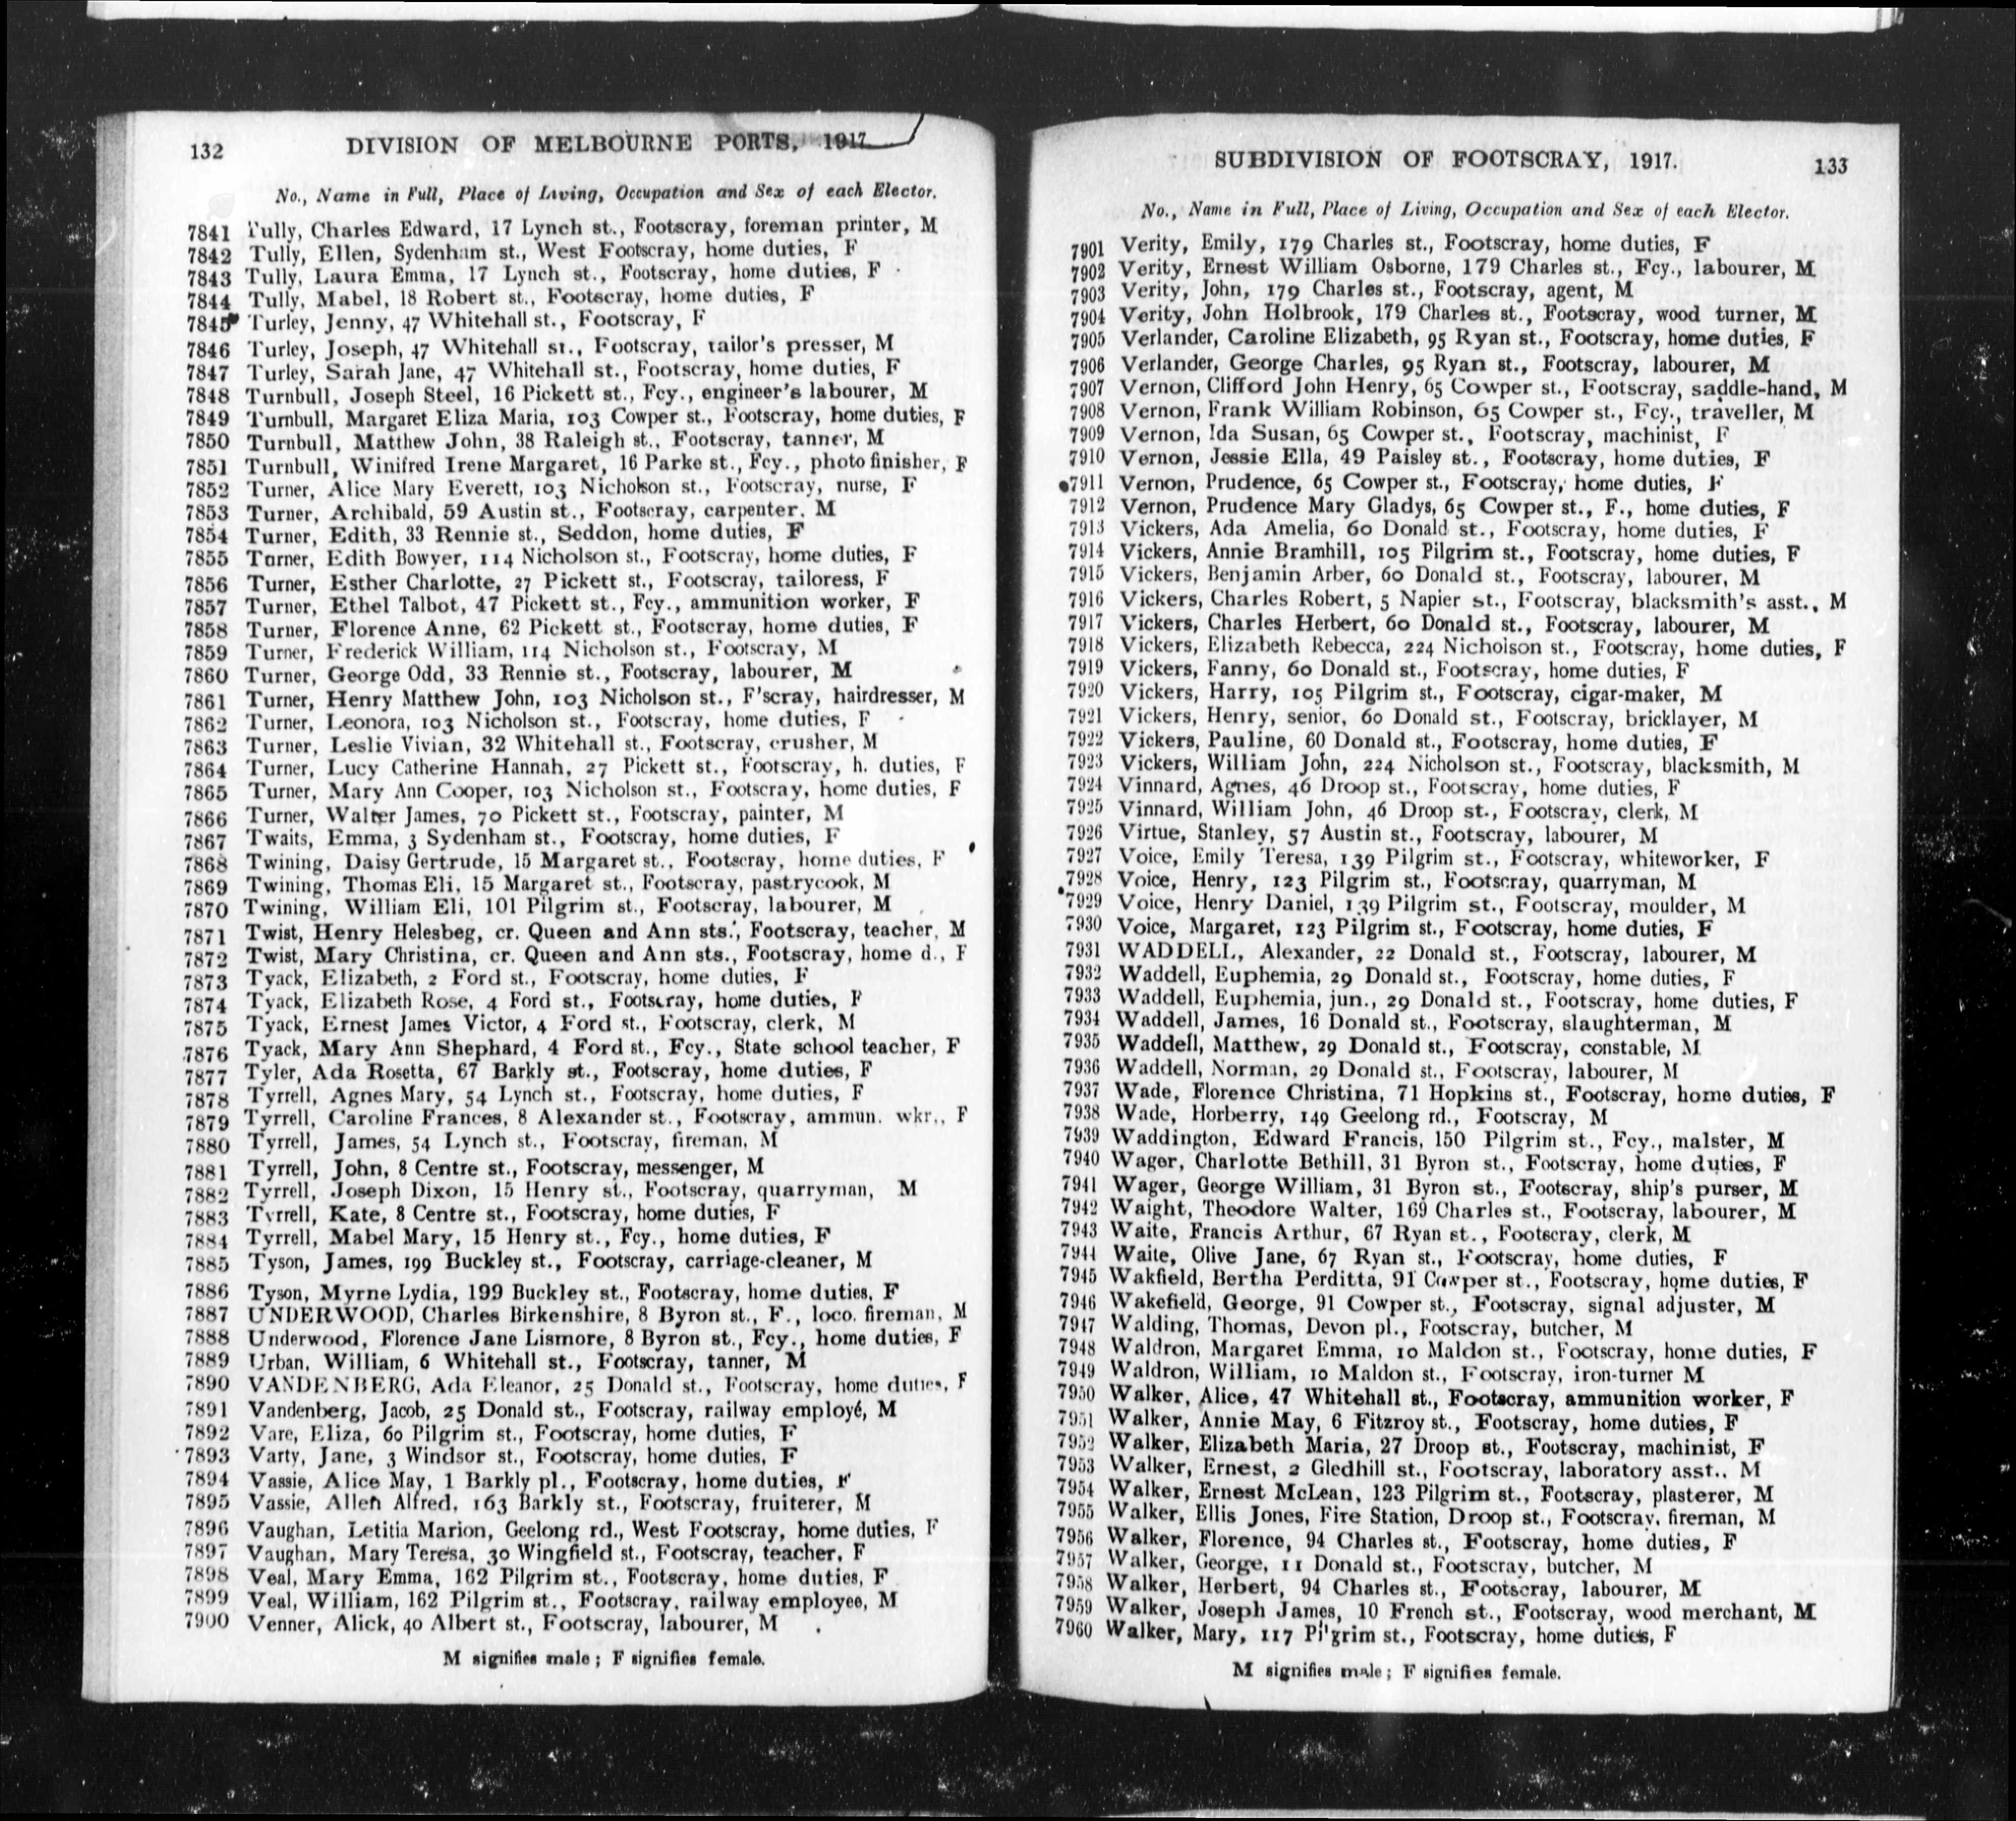 132
DIVISION OF MELBOURNE PORTS, 1917
No., Name in Full, Place of Living, Occupation and Sex of each Elector.
7841 Tully, Charles Edward, 17 Lynch st., Footscray, foreman printer, M
7842 Tully, Ellen, Sydenham st., West Footscray, home duties, F
7843 Tully, Laura Emma, 17 Lynch st., Footscray, home duties, F
7844 Tully, Mabel, 18 Robert st., Footscray, home duties, F
7845 Turley, Jenny, 47 Whitehall st., Footscray, F
7846 Turley, Joseph, 47 Whitehall st., Footscray, tailor's presser, M
7847 Turley, Sarah Jane, 47 Whitehall st., Footscray, home duties, F
7848 Turnbull, Joseph Steel, 16 Pickett st., Fcy., engineer's labourer, M
7849 Turnbull, Margaret Eliza Maria, 103 Cowper st., Footscray, home duties, F
7850 Turnbull, Matthew John, 38 Raleigh st., Footscray, tanner, M
7851 Turnbull, Winifred Irene Margaret, 16 Parke st., Fcy., photo finisher, F
7852 Turner, Alice Mary Everett, 103 Nicholson st., Footscray, nurse, F
7853 Turner, Archibald, 59 Austin st., Footscray, carpenter, M
7854 Turner, Edith, 33 Rennie st., Seddon, home duties, F
7855 Turner, Edith Bowyer, 114 Nicholson st., Footscray, home duties, F
7856 Turner, Esther Charlotte, 27 Pickett st., Footscray, tailoress, F
7857 Turner, Ethel Talbot, 47 Pickett st., Fcy., ammunition worker, F
7858 Turner, Florence Anne, 62 Pickett st., Footscray, home duties, F
7859 Turner, Frederick William, 114 Nicholson st., Footscray, M
7860 Turner, George Odd, 33 Rennie st., Footscray, labourer, M
7861 Turner, Henry Matthew John, 103 Nicholson st., F'scray, hairdresser, M
7862 Turner, Leonora, 103 Nicholson st., Footscray, home duties, F
7863 Turner, Leslie Vivian, 32 Whitehall st., Footscray, crusher, M
7864 Turner, Lucy Catherine Hannah, 27 Pickett st., Footscray, h. duties, F
7865 Turner, Mary Ann Cooper, 103 Nicholson st., Footscray, home duties, F
7866 Turner, Walter James, 70 Pickett st., Footscray, painter, M
7867 Twaits, Emma, 3 Sydenham st., Footscray, home duties, F
7868 Twining, Daisy Gertrude, 15 Margaret st., Footscray, home duties, F
7869 Twining, Thomas Eli, 15 Margaret st., Footscray, pastrycook, M
7870 Twining, William Eli, 101 Pilgrim st., Footscray, labourer, M
7871 Twist, Henry Helesbeg, cr. Queen and Ann sts., Footscray, teacher, M
7872 Twist, Mary Christina, cr. Queen and Ann sts., Footscray, home d., F
7873 Tyack, Elizabeth, 2 Ford st., Footscray, home duties, F
7874 Tyack, Elizabeth Rose, 4 Ford st., Footscray, home duties, F
7875 Tyack, Ernest James Victor, 4 Ford st., Footscray, clerk, M
7876 Tyack, Mary Ann Shephard, 4 Ford st., Fcy., State school teacher, F
7877 Tyler, Ada Rosetta, 67 Barkly st., Footscray, home duties, F
7878 Tyrrell, Agnes Mary, 54 Lynch st., Footscray, home duties, F
7879 Tyrrell, Caroline Frances, 8 Alexander st., Footscray, ammun. wkr., F
7880 Tyrrell, James, 54 Lynch st., Footscray, fireman, M
7881 Tyrrell, John, 8 Centre st., Footscray, messenger, M
7882 Tyrrell, Joseph Dixon, 15 Henry st., Footscray, quarryman, M
7883 Tyrrell, Kate, 8 Centre st., Footscray, home duties, F
7884 Tyrrell, Mabel Mary, 15 Henry st., Fcy., home duties, F
7885 Tyson, James, 199 Buckley st., Footscray, carriage-cleaner, M
7886 Tyson, Myrne Lydia, 199 Buckley st., Footscray, home duties, F
7887 UNDERWOOD, Charles Birkenshire, 8 Byron st., F., loco. fireman, M
7888 Underwood, Florence Jane Lismore, 8 Byron st., Fcy., home duties, F
7889 Urban, William, 6 Whitehall st., Footscray, tanner, M
7890 VANDENBERG, Ada Eleanor, 25 Donald st., Footscray, home duties, F
7891 Vandenberg, Jacob, 25 Donald st., Footscray, railway employé, M
7892 Vare, Eliza, 60 Pilgrim st., Footscray, home duties, F
7893 Varty, Jane, 3 Windsor st., Footscray, home duties, F
7894 Vassie, Alice May, 1 Barkly pl., Footscray, home duties, F
7895 Vassie, Allen Alfred, 163 Barkly st., Footscray, fruiterer, M
7896 Vaughan, Letitia Marion, Geelong rd., West Footscray, home duties, F
7897 Vaughan, Mary Teresa, 30 Wingfield st., Footscray, teacher, F
7898 Veal, Mary Emma, 162 Pilgrim st., Footscray, home duties, F
7899 Veal, William, 162 Pilgrim st., Footscray, railway employee, M
7900 Venner, Alick, 40 Albert st., Footscray, labourer, M
M signifies male; F signifies female.
SUBDIVISION OF FOOTSCRAY, 1917.
133
No., Name in Full, Place of Living, Occupation and Sex of each Elector.
7901 Verity, Emily, 179 Charles st., Footscray, home duties, F
7902 Verity, Ernest William Osborne, 179 Charles st., Fcy., labourer, M
7903 Verity, John, 179 Charles st., Footscray, agent, M
7904 Verity, John Holbrook, 179 Charles st., Footscray, wood turner, M
7905 Verlander, Caroline Elizabeth, 95 Ryan st., Footscray, home duties, F
7906 Verlander, George Charles, 95 Ryan st., Footscray, labourer, M
7907 Vernon, Clifford John Henry, 65 Cowper st., Footscray, saddle-hand, M
7908 Vernon, Frank William Robinson, 65 Cowper st., Fcy., traveller, M
7909 Vernon, Ida Susan, 65 Cowper st., Footscray, machinist, F
7910 Vernon, Jessie Ella, 49 Paisley st., Footscray, home duties, F
7911 Vernon, Prudence, 65 Cowper st., Footscray, home duties, F
7912 Vernon, Prudence Mary Gladys, 65 Cowper st., F., home duties, F
7913 Vickers, Ada Amelia, 60 Donald st., Footscray, home duties, F
7914 Vickers, Annie Bramhill, 105 Pilgrim st., Footscray, home duties, F
7915 Vickers, Benjamin Arber, 60 Donald st., Footscray, labourer, M
7916 Vickers, Charles Robert, 5 Napier st., Footscray, blacksmith's asst., M
7917 Vickers, Charles Herbert, 60 Donald st., Footscray, labourer, M
7918 Vickers, Elizabeth Rebecca, 224 Nicholson st., Footscray, home duties, F
7919 Vickers, Fanny, 60 Donald st., Footscray, home duties, F
7920 Vickers, Harry, 105 Pilgrim st., Footscray, cigar-maker, M
7921 Vickers, Henry, senior, 60 Donald st., Footscray, bricklayer, M
7922 Vickers, Pauline, 60 Donald st., Footscray, home duties, F
7923 Vickers, William John, 224 Nicholson st., Footscray, blacksmith, M
7924 Vinnard, Agnes, 46 Droop st., Footscray, home duties, F
7925 Vinnard, William John, 46 Droop st., Footscray, clerk, M
7926 Virtue, Stanley, 57 Austin st., Footscray, labourer, M
7927 Voice, Emily Teresa, 139 Pilgrim st., Footscray, whiteworker, F
7928 Voice, Henry, 123 Pilgrim st., Footscray, quarryman, M
7929 Voice, Henry Daniel, 139 Pilgrim st., Footscray, moulder, M
7930 Voice, Margaret, 123 Pilgrim st., Footscray, home duties, F
7931 WADDELL, Alexander, 22 Donald st., Footscray, labourer, M
7932 Waddell, Euphemia, 29 Donald st., Footscray, home duties, F
7933 Waddell, Euphemia, jun., 29 Donald st., Footscray, home duties, F
7934 Waddell, James, 16 Donald st., Footscray, slaughterman, M
7935 Waddell, Matthew, 29 Donald st., Footscray, constable, M
7936 Waddell, Norman, 29 Donald st., Footscray, labourer, M
7937 Wade, Florence Christina, 71 Hopkins st., Footscray, home duties, F
7938 Wade, Horberry, 149 Geelong rd., Footscray, M
7939 Waddington, Edward Francis, 150 Pilgrim st., Fcy., malster, M
7940 Wager, Charlotte Bethill, 31 Byron st., Footscray, home duties, F
7941 Wager, George William, 31 Byron st., Footscray, ship's purser, M
7942 Waight, Theodore Walter, 169 Charles st., Footscray, labourer, M
7943 Waite, Francis Arthur, 67 Ryan st., Footscray, clerk, M
7944 Waite, Olive Jane, 67 Ryan st., Footscray, home duties, F
7945 Wakfield, Bertha Perditta, 91 Cowper st., Footscray, home duties, F
7946 Wakefield, George, 91 Cowper st., Footscray, signal adjuster, M
7947 Walding, Thomas, Devon pl., Footscray, butcher, M
7948 Waldron, Margaret Emma, 10 Maldon st., Footscray, home duties, F
7949 Waldron, William, 10 Maldon st., Footscray, iron-turner M
7950 Walker, Alice, 47 Whitehall st., Footscray, ammunition worker, F
7951 Walker, Annie May, 6 Fitzroy st., Footscray, home duties, F
7952 Walker, Elizabeth Maria, 27 Droop st., Footscray, machinist, F
7953 Walker, Ernest, 2 Gledhill st., Footscray, laboratory asst., M
7954 Walker, Ernest McLean, 123 Pilgrim st., Footscray, plasterer, M
7955 Walker, Ellis Jones, Fire Station, Droop st., Footscray, fireman, M
7956 Walker, Florence, 94 Charles st., Footscray, home duties, F
7957 Walker, George, 11 Donald st., Footscray, butcher, M
7958 Walker, Herbert, 94 Charles st., Footscray, labourer, M
7959 Walker, Joseph James, 10 French st., Footscray, wood merchant, M
7960 Walker, Mary, 117 Pilgrim st., Footscray, home duties, F
M signifies male; F signifies female.